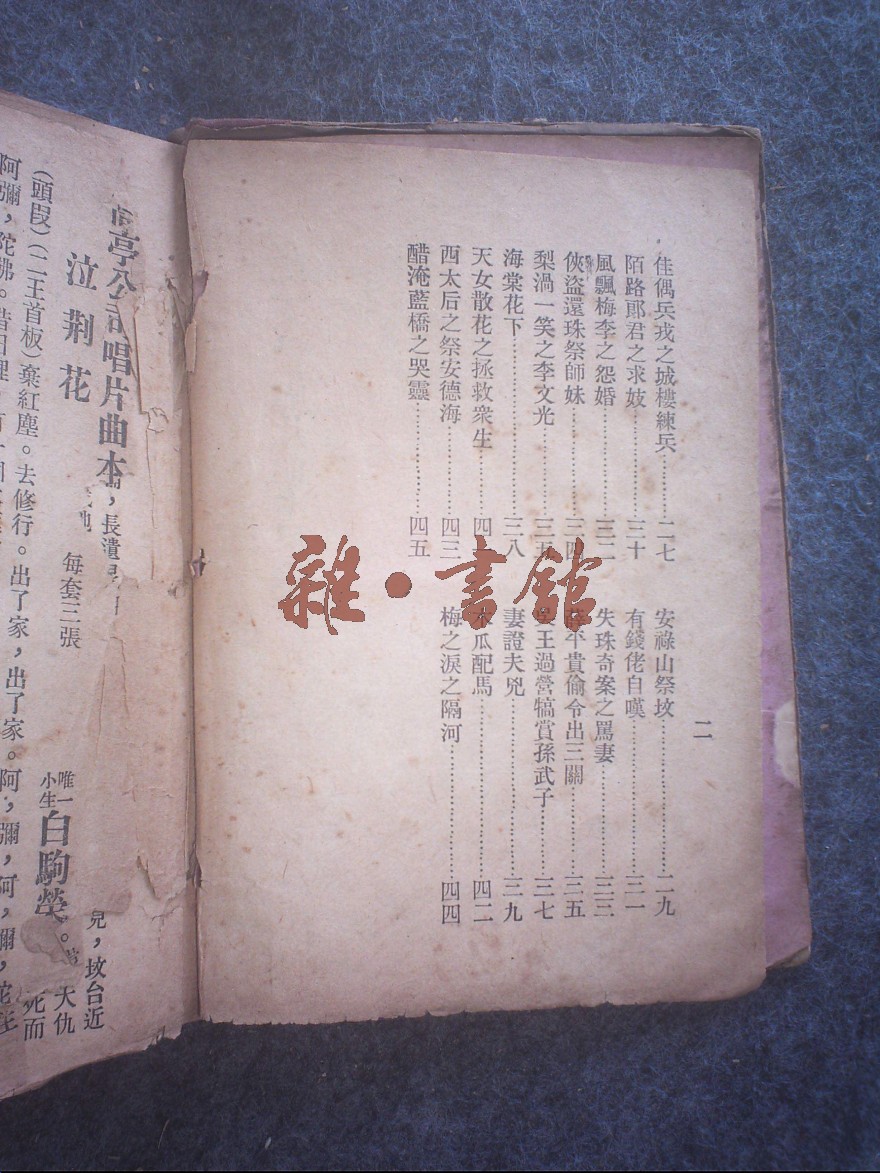 二
佳偶兵戎之城樓練兵…………二七
安祿山祭坟…………二九
陌路郎君之求妓…………三十
有錢佬自嘆…………三一
風飄梅李之怨婚…………三二
失珠奇案之罵妻…………三三
俠盜還珠祭師妹…………三四
平貴偷令出三關…………三五
梨渦一笑之李文光…………三五
王過營犒賞孫武子…………三七
海棠花下…………三八
妻證夫兇…………三九
天女散花之拯救衆生…………四
木瓜配馬…………四二
西太后之祭安德海…………四三
梅之淚之隔河…………四四
醋淹藍橋之哭靈…………四五
雜·書館
亭公司唱片曲本
泣荆花
每套三張
唯一小生白駒榮
(頭段)(二王首板)棄紅塵。去修行。出了家,出了家。
阿彌,陀佛。昔日
阿,彌,阿,彌,陀
長
兒,坟台近
大仇
死而